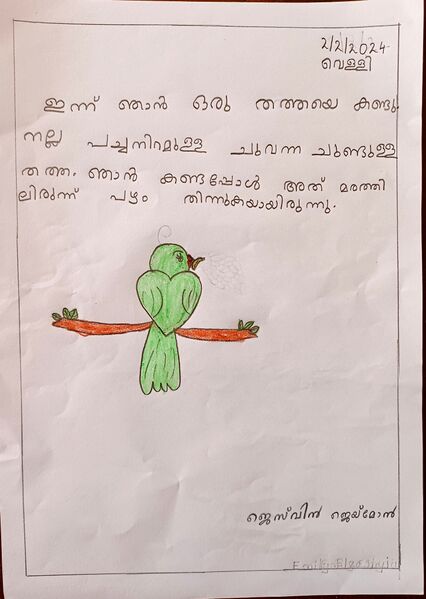 2/2/2024
വെള്ളി
ഇന്ന് ഞാൻ ഒരു തത്തയെ കണ്ടു
നല്ല പച്ചനിറമുള്ള ചുവന്ന ചുണ്ടുള്ള
തത്ത. ഞാൻ കണ്ടപ്പോൾ അത് മരത്തി
ലിരുന്ന് പഴം തിന്നുകയായിരുന്നു.
ജെസ്‌വിൻ ജെയ്മോൻ